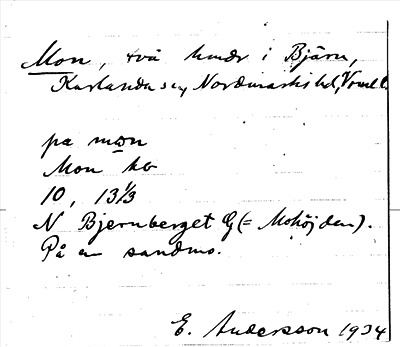 Mon, två hmdr i Bjärn,
Karlanda sn, Nordmarks hd, Vrml.
på mon
Mon hb
10, 13 1/3
N Bjernberget G (= Mohöjden).
På en sandmo.
E. Andersson 1934